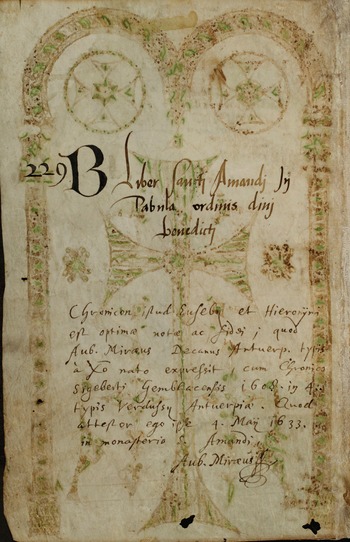 229 B Liber Sancti Amandi In
Pabula ordinis divi
benedicti
Chronicon istud Eusebij et Hieronymi
est optimæ notæ ac fidei; quod
Aub. Miræus Decanus Antuerp. typis
à Xo nato expressit cum Chronico
Sigeberti Gemblacensis 1608. in 4.
typis Verdussij Antuerpiæ. Quod
attestor ego ipse 4. Maij 1633.
in monasterio S. Amandi,
Aub. Miræus